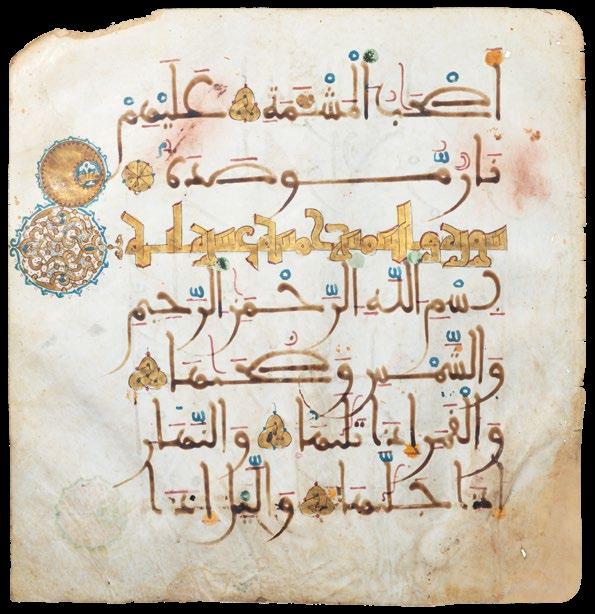 أَصْحَٰبُ الْمَشْـَٔمَةِ عَلَيْهِمْ
نَارٌ مُّوصَدَةٌ
سورة والشمس خمس عشرة اية
بِسْمِ اللَّهِ الرَّحْمَٰنِ الرَّحِيمِ
وَالشَّمْسِ وَضُحَيٰهَا
وَالْقَمَرِ إِذَا تَلَيٰهَا وَالنَّهَارِ
إِذَا جَلَّيٰهَا وَالَّيْلِ إِذَا